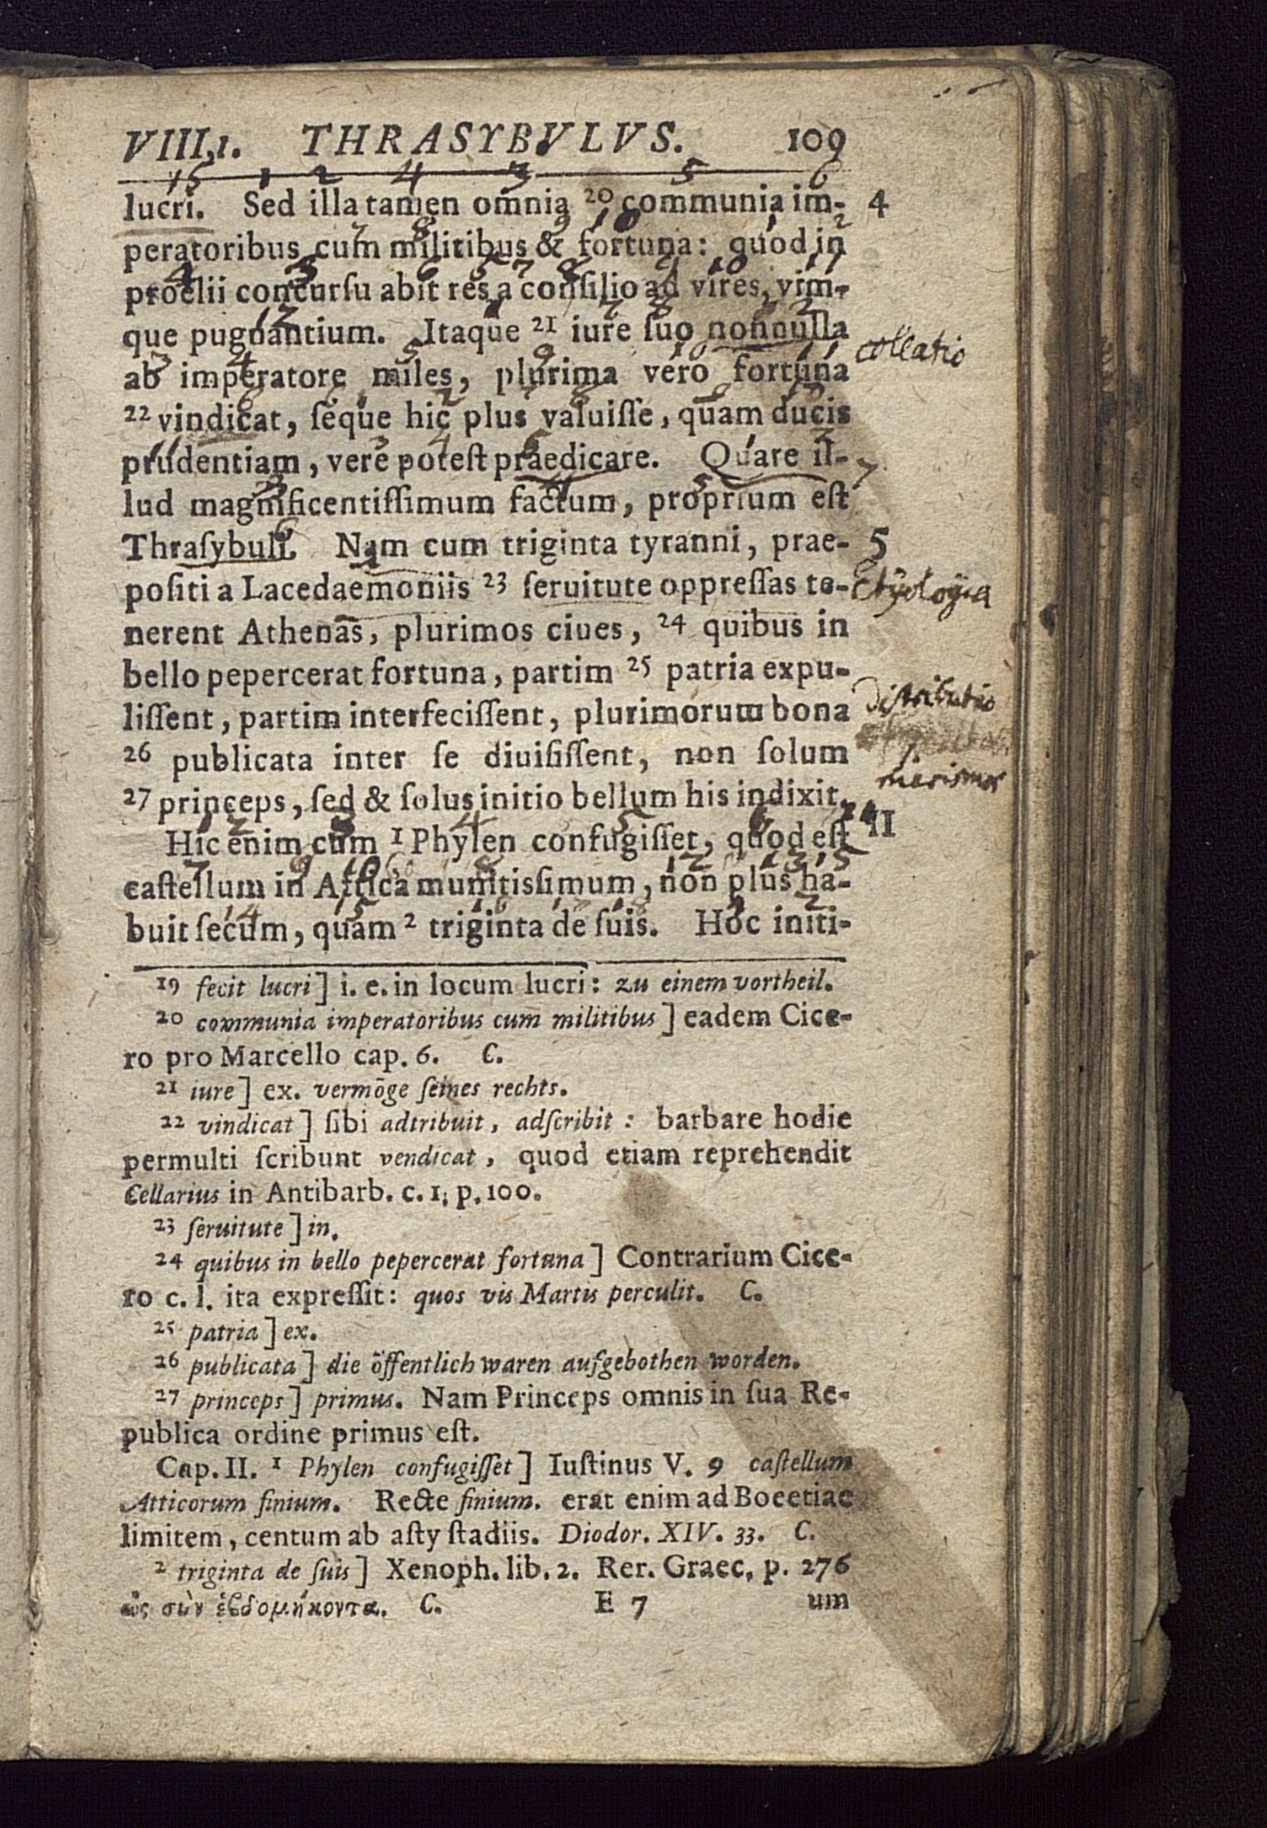 VIII,1. THRASYBVLVS. 109
lucri. Sed illa tamen omnia 20 communia im- 4
peratoribus cum militibus & fortuna: quod in
proelii concursu abit res a consilio ad vires, vim-
que pugnantium. Itaque 21 iure suo nonnulla
collatio
ab imperatore miles, plurima vero fortuna
22 vindicat, seque hic plus valuisse, quam ducis
prudentiam, vere potest praedicare. Quare il-
lud magnificentissimum factum, proprium est
Thrasybuli. Nam cum triginta tyranni, prae- 5
positi a Lacedaemoniis 23 seruitute oppressas te-
nerent Athenas, plurimos ciues, 24 quibus in
bello pepercerat fortuna, partim 25 patria expu-
Distributio
lissent, partim interfecissent, plurimorum bona
26 publicata inter se diuisissent, non solum
merismos
27 princeps, sed & solus initio bellum his indixit.
Hic enim cum 1 Phylen confugisset, quod est II
castellum in Attica munitissimum, non plus ha-
buit secum, quam 2 triginta de suis. Hoc initi-
19 fecit lucri] i. e. in locum lucri: zu einem vortheil.
20 communia imperatoribus cum militibus] eadem Cice-
ro pro Marcello cap. 6. C.
21 iure] ex. vermöge seines rechts.
22 vindicat] sibi adtribuit, adscribit: barbare hodie
permulti scribunt vendicat, quod etiam reprehendit
Cellarius in Antibarb. c. 1. p. 100.
23 seruitute] in.
24 quibus in bello pepercerat fortuna] Contrarium Cice-
ro c. l. ita expressit: quos vis Martis perculit. C.
25 patria] ex.
26 publicata] die öffentlich waren aufgebothen worden.
27 princeps] primus. Nam Princeps omnis in sua Re-
publica ordine primus est.
Cap. II. 1 Phylen confugisset] Iustinus V. 9 castellum
Atticorum finium. Recte finium. erat enim ad Boeetiae
limitem, centum ab asty stadiis. Diodor. XIV. 33. C.
2 triginta de suis] Xenoph. lib. 2. Rer. Graec. p. 276
ὡς σὺν ἑβδομήκοντα. C. E 7 um